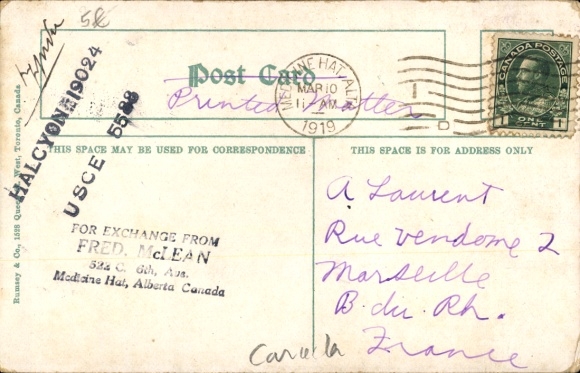 5£
HALCYONE 19024
USCE 5588
Post Card
Printed Matter
MEDICINE HAT, ALTA
MAR 10
11 AM
1919
CANADA POSTAGE
1 ONE CENT 1
THIS SPACE MAY BE USED FOR CORRESPONDENCE
THIS SPACE IS FOR ADDRESS ONLY
FOR EXCHANGE FROM
FRED. McLEAN
Medicine Hat, Alberta Canada
A Laurent
Rue Vendome 2
Marseille
B. du Rh.
France
Rumsey & Co., 1528 Queen St. West, Toronto, Canada